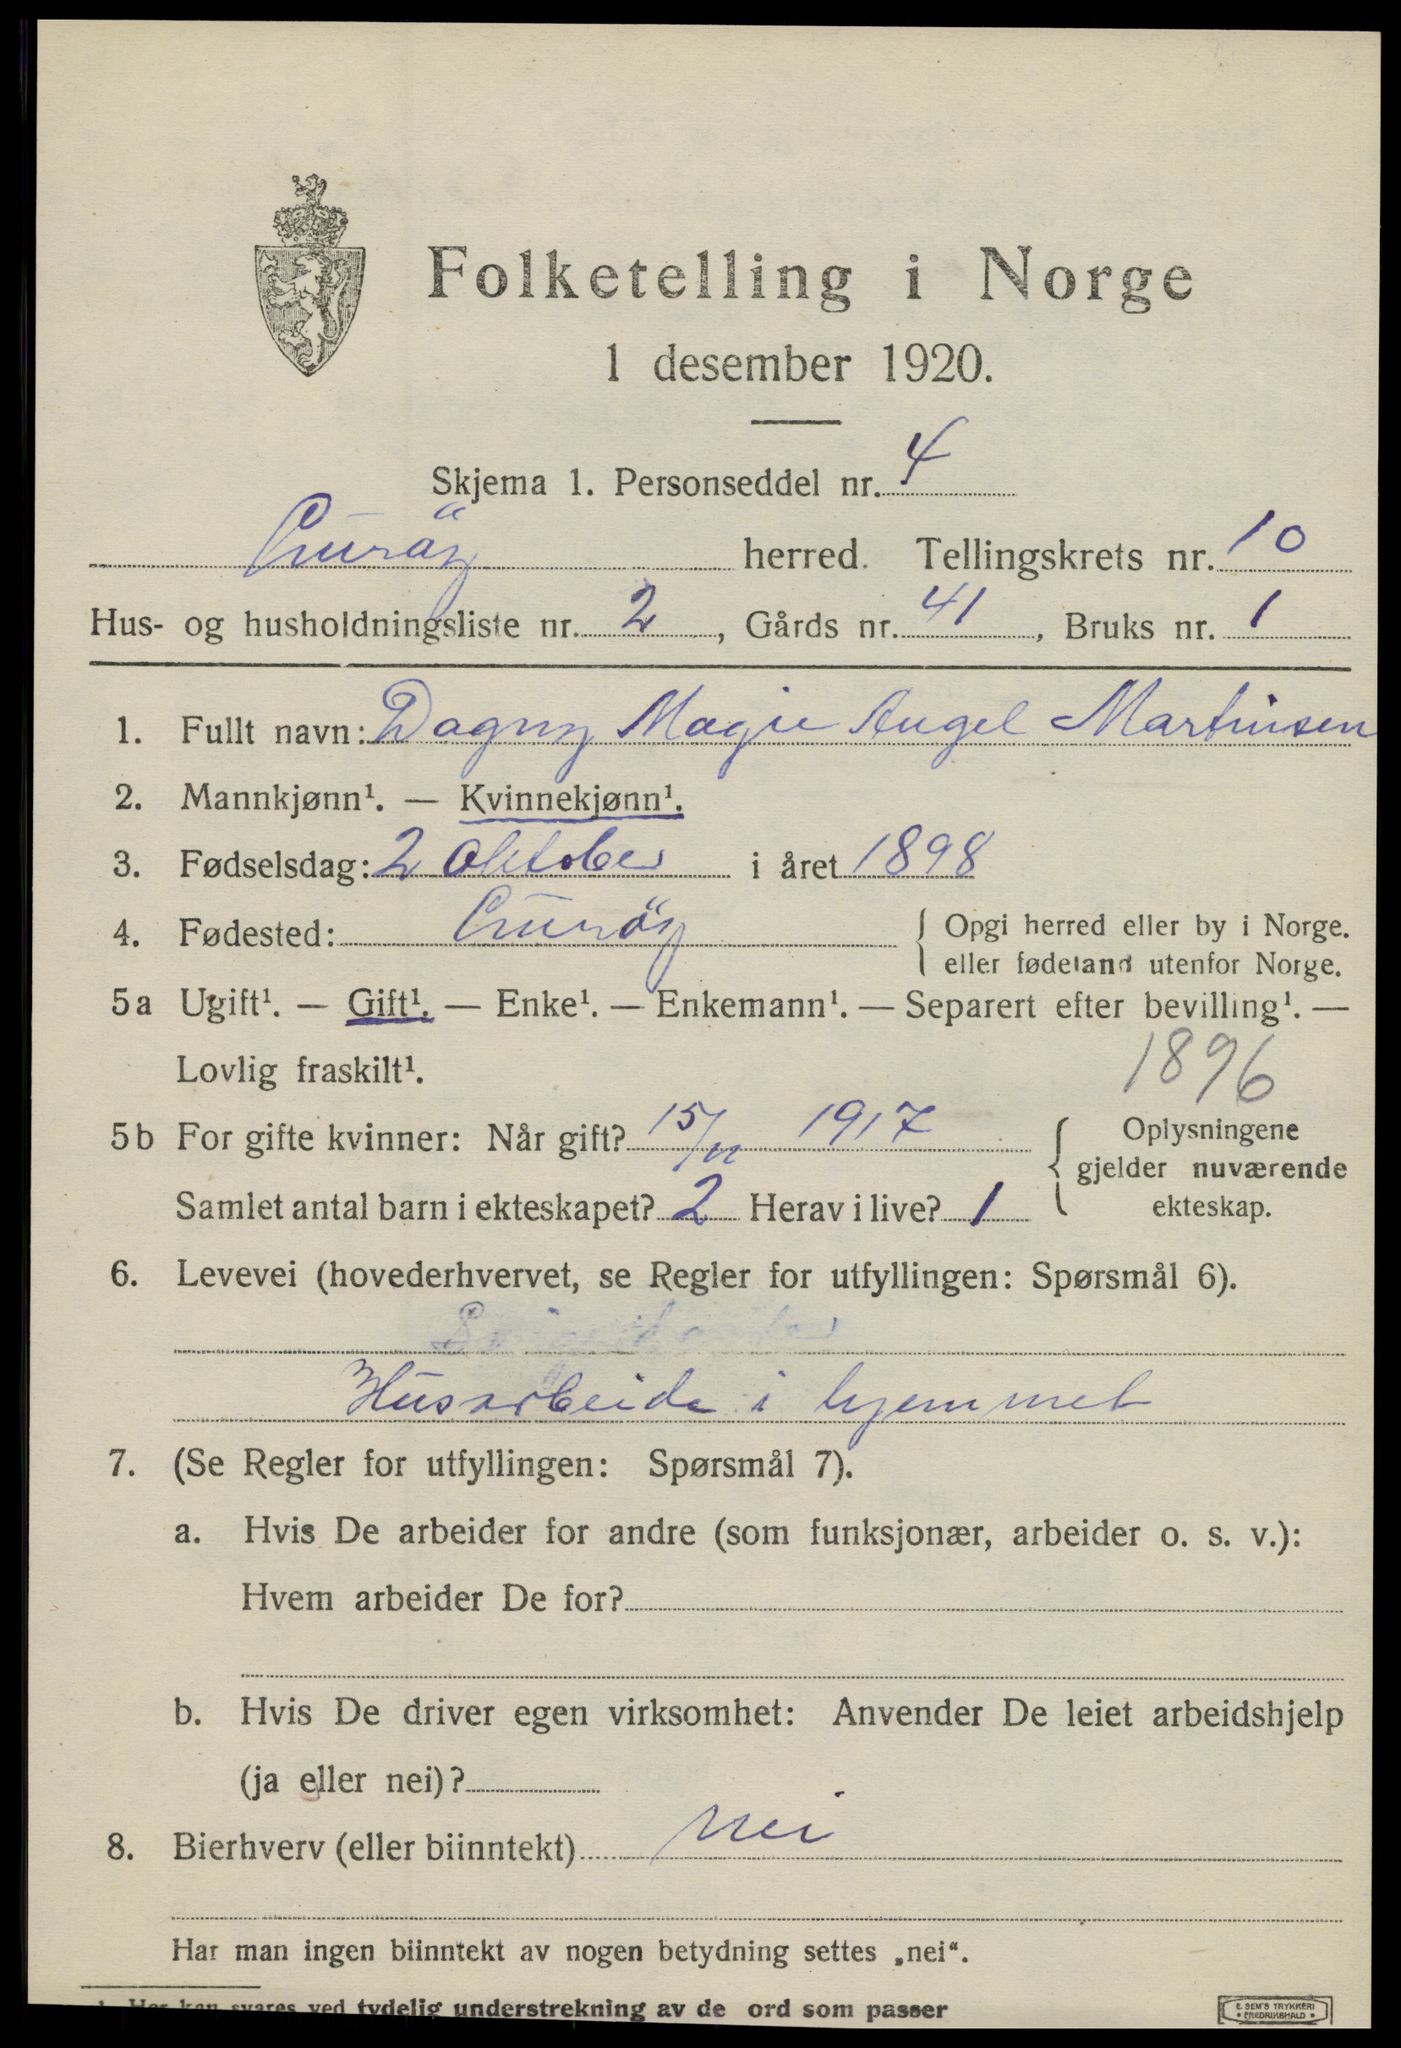 Folketelling i Norge
1 desember 1920.
Skjema 1. Personseddel nr. 4
herred. Tellingskrets nr. 10
Hus- og husholdningsliste nr. 2, Gårds nr. 41, Bruks nr. 1
1. Fullt navn: Dagny Magie Angel Martinsen
2. Mannkjønn¹. — Kvinnekjønn¹.
3. Fødselsdag: 2 oktober i året 1898
4. Fødested:
{ Opgi herred eller by i Norge.
eller fødeland utenfor Norge.
5a Ugift¹. — Gift¹. — Enke¹. — Enkemann¹. — Separert efter bevilling¹. —
Lovlig fraskilt¹.
1896
5b For gifte kvinner: Når gift? 15/11 1917
Samlet antal barn i ekteskapet? 2 Herav i live? 1
{ Oplysningene
gjelder nuværende
ekteskap.
6. Levevei (hovederhvervet, se Regler for utfyllingen: Spørsmål 6).
Husarbeide i hjemmet
7. (Se Regler for utfyllingen: Spørsmål 7).
a. Hvis De arbeider for andre (som funksjonær, arbeider o. s. v.):
Hvem arbeider De for?
b. Hvis De driver egen virksomhet: Anvender De leiet arbeidshjelp
(ja eller nei)?
8. Bierhverv (eller biinntekt) nei
Har man ingen biinntekt av nogen betydning settes „nei“.
1 Her kan svares ved tydelig understrekning av de ord som passer
E. SEM'S TRYKKERI
FREDRIKSHALD